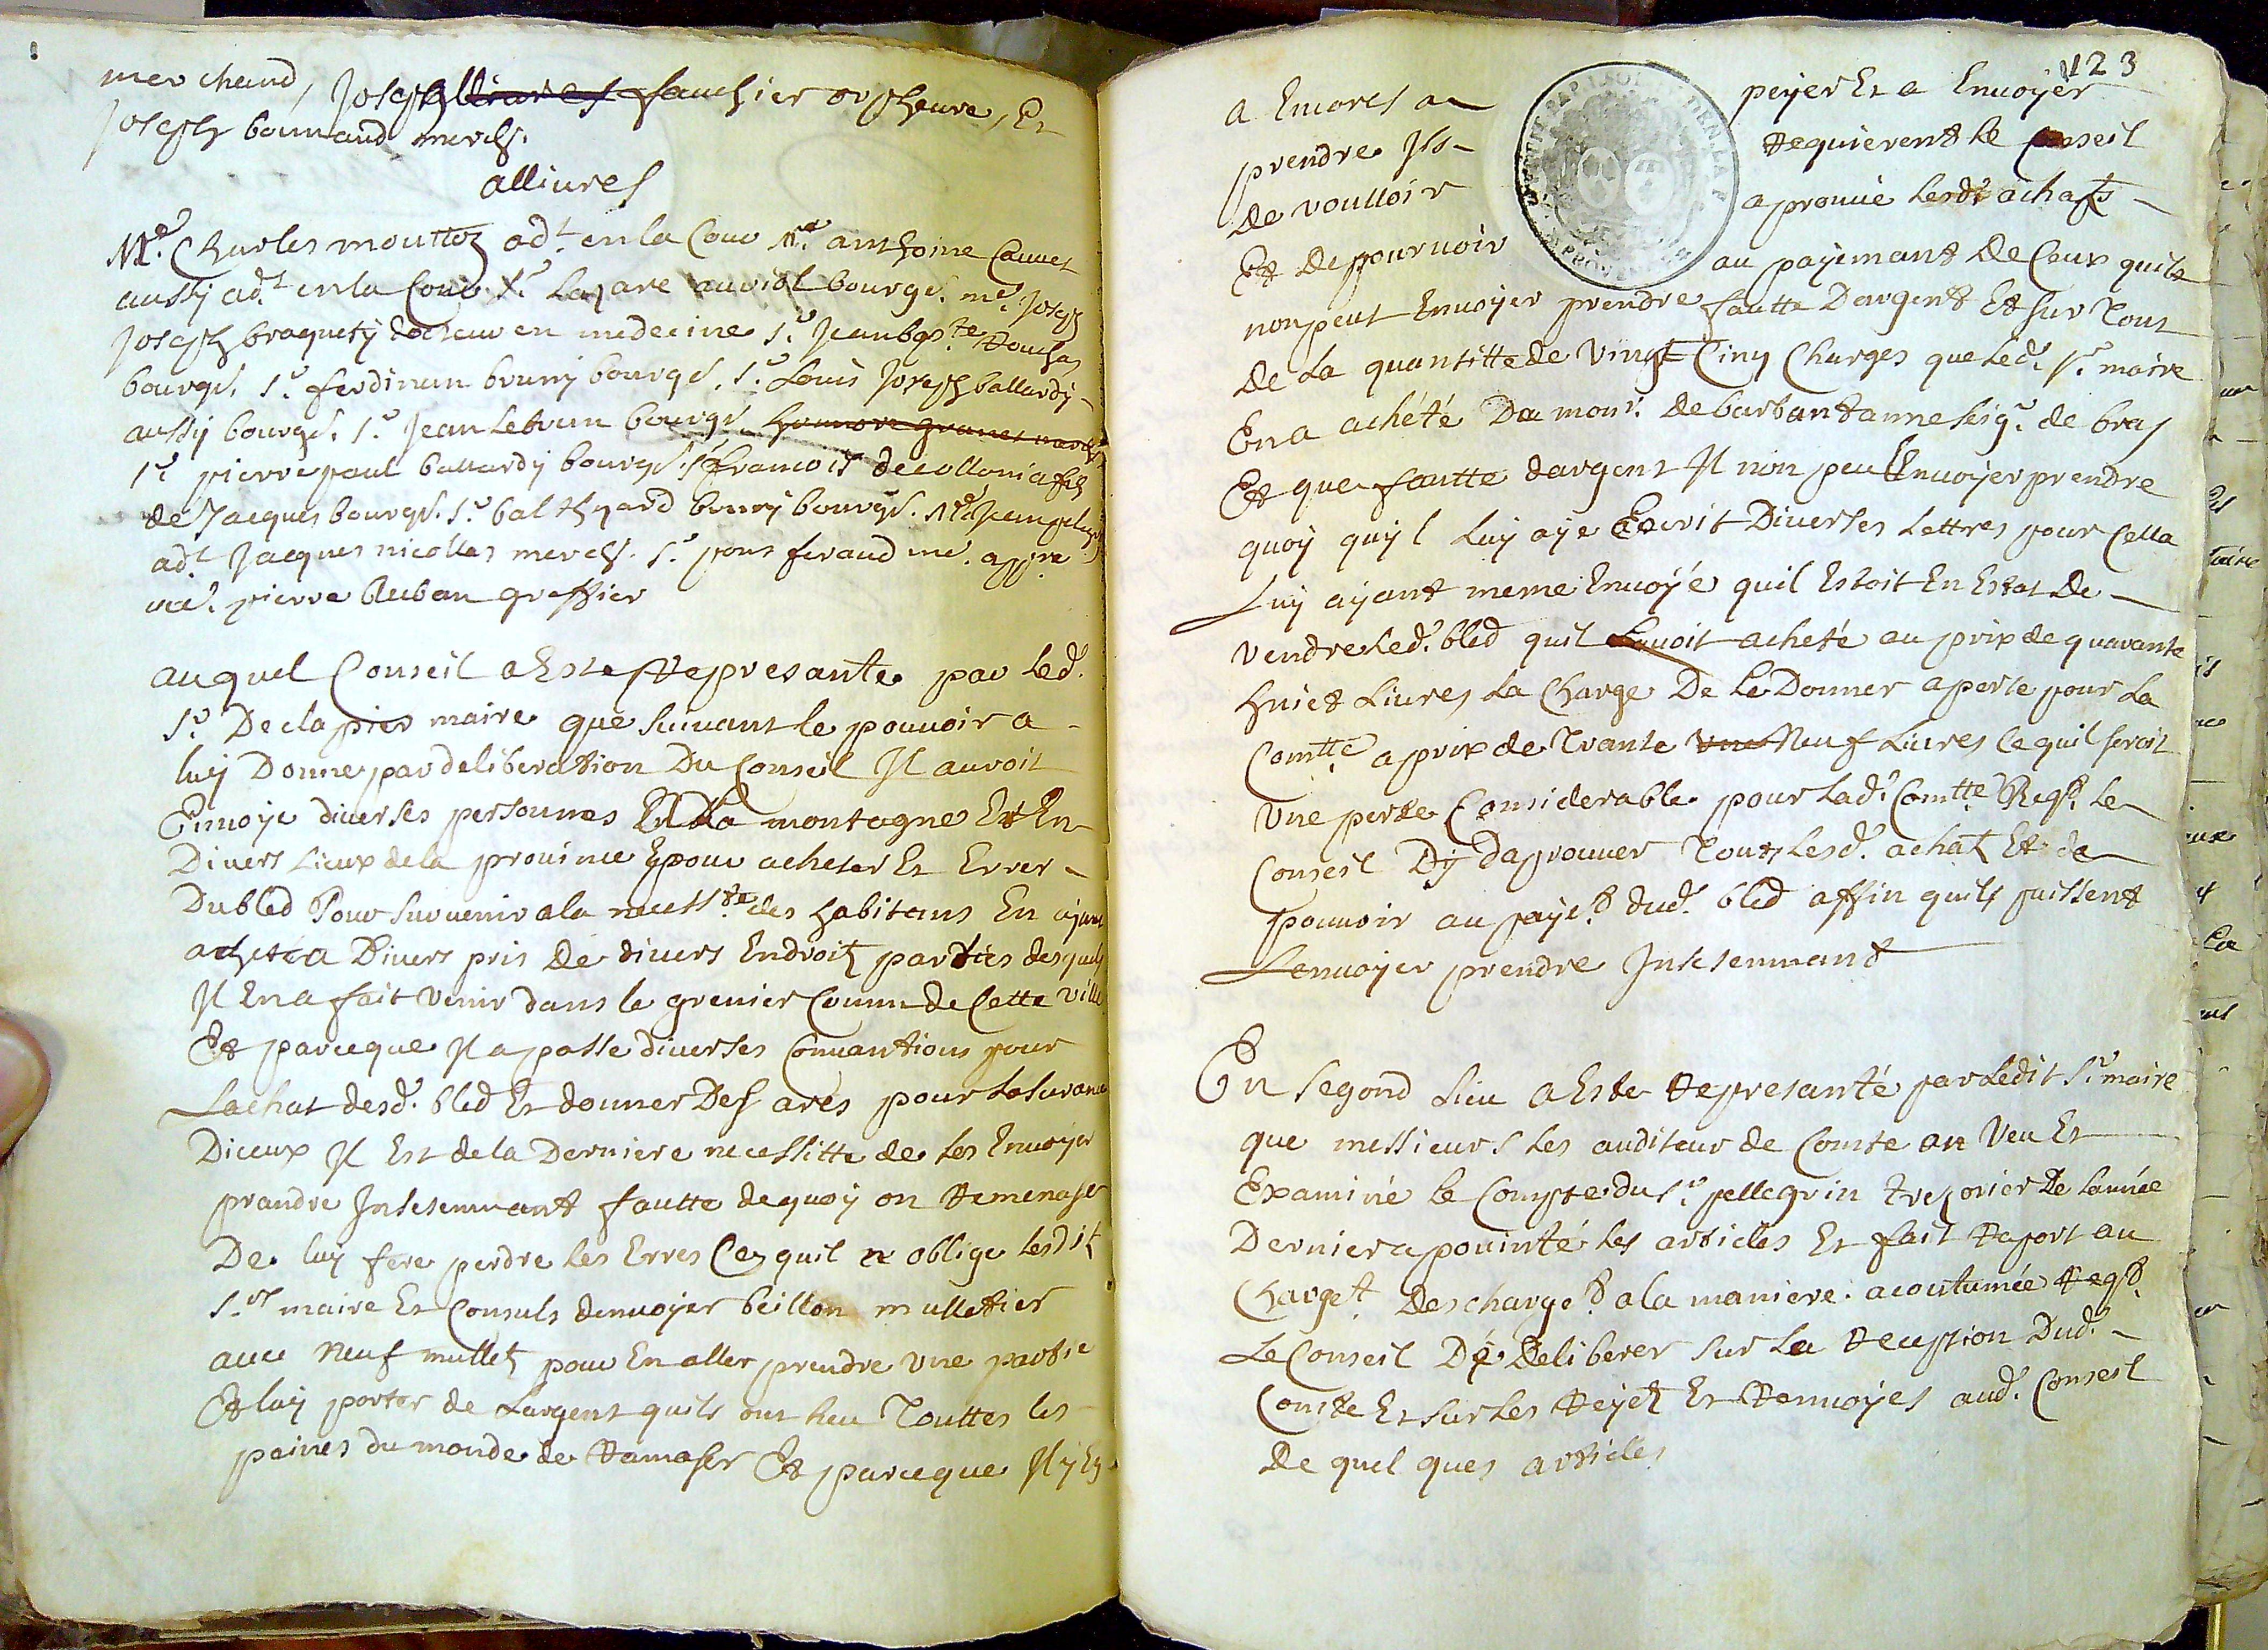 merchand, Joseph alliures fauchier orpheure, Et
Joseph bounaud merch.
alliures
Me. Charles mouttet adt. en la Cour Me. anthoine Cauvet
aussy adt. en la Cour Sr. Lazare auriol bourgs. me. Joseph
Joseph braquety docteur en medecine Sr. Jean bapte. Rouchas
bourgs. Sr. ferdinan bruny bourgs. Sr. Louis Joseph ballardy
aussy bourgs. Sr. Jean Lebrun bourgs. honnore granet march
Sr. pierre paul ballardy bourgs. Sr. francois decollonia fils
de Jacques bourgs. Sr. balthzard bruny bourgs. Me. Jean
adt. Jacques nicollas merch. Sr. pons feraud me. appre
me. pierre Auban greffier
auquel Conseil a Este Represante par led.
Sr. Declapies maire que suivant le pouvoir a
luy Donne par deliberation Du Conseil Il auroit
Envoye diverses personnes En La montagne Et En
Divers Lieux de la province pour acheter Et Errer
Du bled Pour survenir a la necessté. des habitans En ayant
achetea Divers pris De divers Endroitz parties desquels
Il En a fait venir dans le grenier Comun de Cette ville
Et parceque Il a passe diverses Convantions pour
Lachat desd. bled Et donner Des ares pour Lasurance
Diceux Il Est de la Derniere necessitte de les Envoyer
prandre Insesemmant fautte dequoy on Remenasse
De luy fere perdre les Erres Ce quil a oblige lesdit
Srs. maire Et Consuls denvoyer beillon mulletier
avec Neuf mullet pour En aller prendre Une partie
Et luy porter de Largent quils ont heu Touttes les
paines du monde de Ramaser Et parceque Il y En
123
a Encores a
payer Et a Envoyer
prendre Ils
Requierent le Conseil
De voulloir
aprouve lesd. achapts
Et de pourvoir
au payemant De Ceux quils
non peut Envoyer prendre fautte Dargent Et sur Tout
De La quantitte de Vingt Cinq Charges que led. Sr. maire
En a achété Da monr. De barbantanne seigr. de bras
Et que fautte dargent Il non peu Envoyer prendre
quoy quyl Luy aye Escrit Diverses Lettres pour Cella
Luy ayant meme Envoyé quil Estoit En Estat De
vendre led. bled quil avoit acheté au prix de quarante
huict Livres La Charge De Le Donner a perte pour La
Comtté a prix de Trante Une Neuf Livres Ce quil seroit
Une perte Considerable pour Lad. Comtte Reqt. le
Conseil Dy Daprouver Touts Lesd. achat Et de
pouvoir au payet. dud. bled affin quils puissent
Lenvoyer prendre Insesemmant
En segond Lieu a Este Represanté par Ledit Sr. maire
que messieurs Les auditeur de Comte an Veu Et
Examiné le Compte du Sr. pellegrin trezorier De Lannée
Derniere apouinté les articles Et fait Raport au
Charget. Descharget. a la maniere acoutumée Reqt.
Le Conseil Dé Deliberer sur La Reception Dud.
Comte Et sur Les Rejet Et Renvoyes aud. Conseil
De quel ques articles